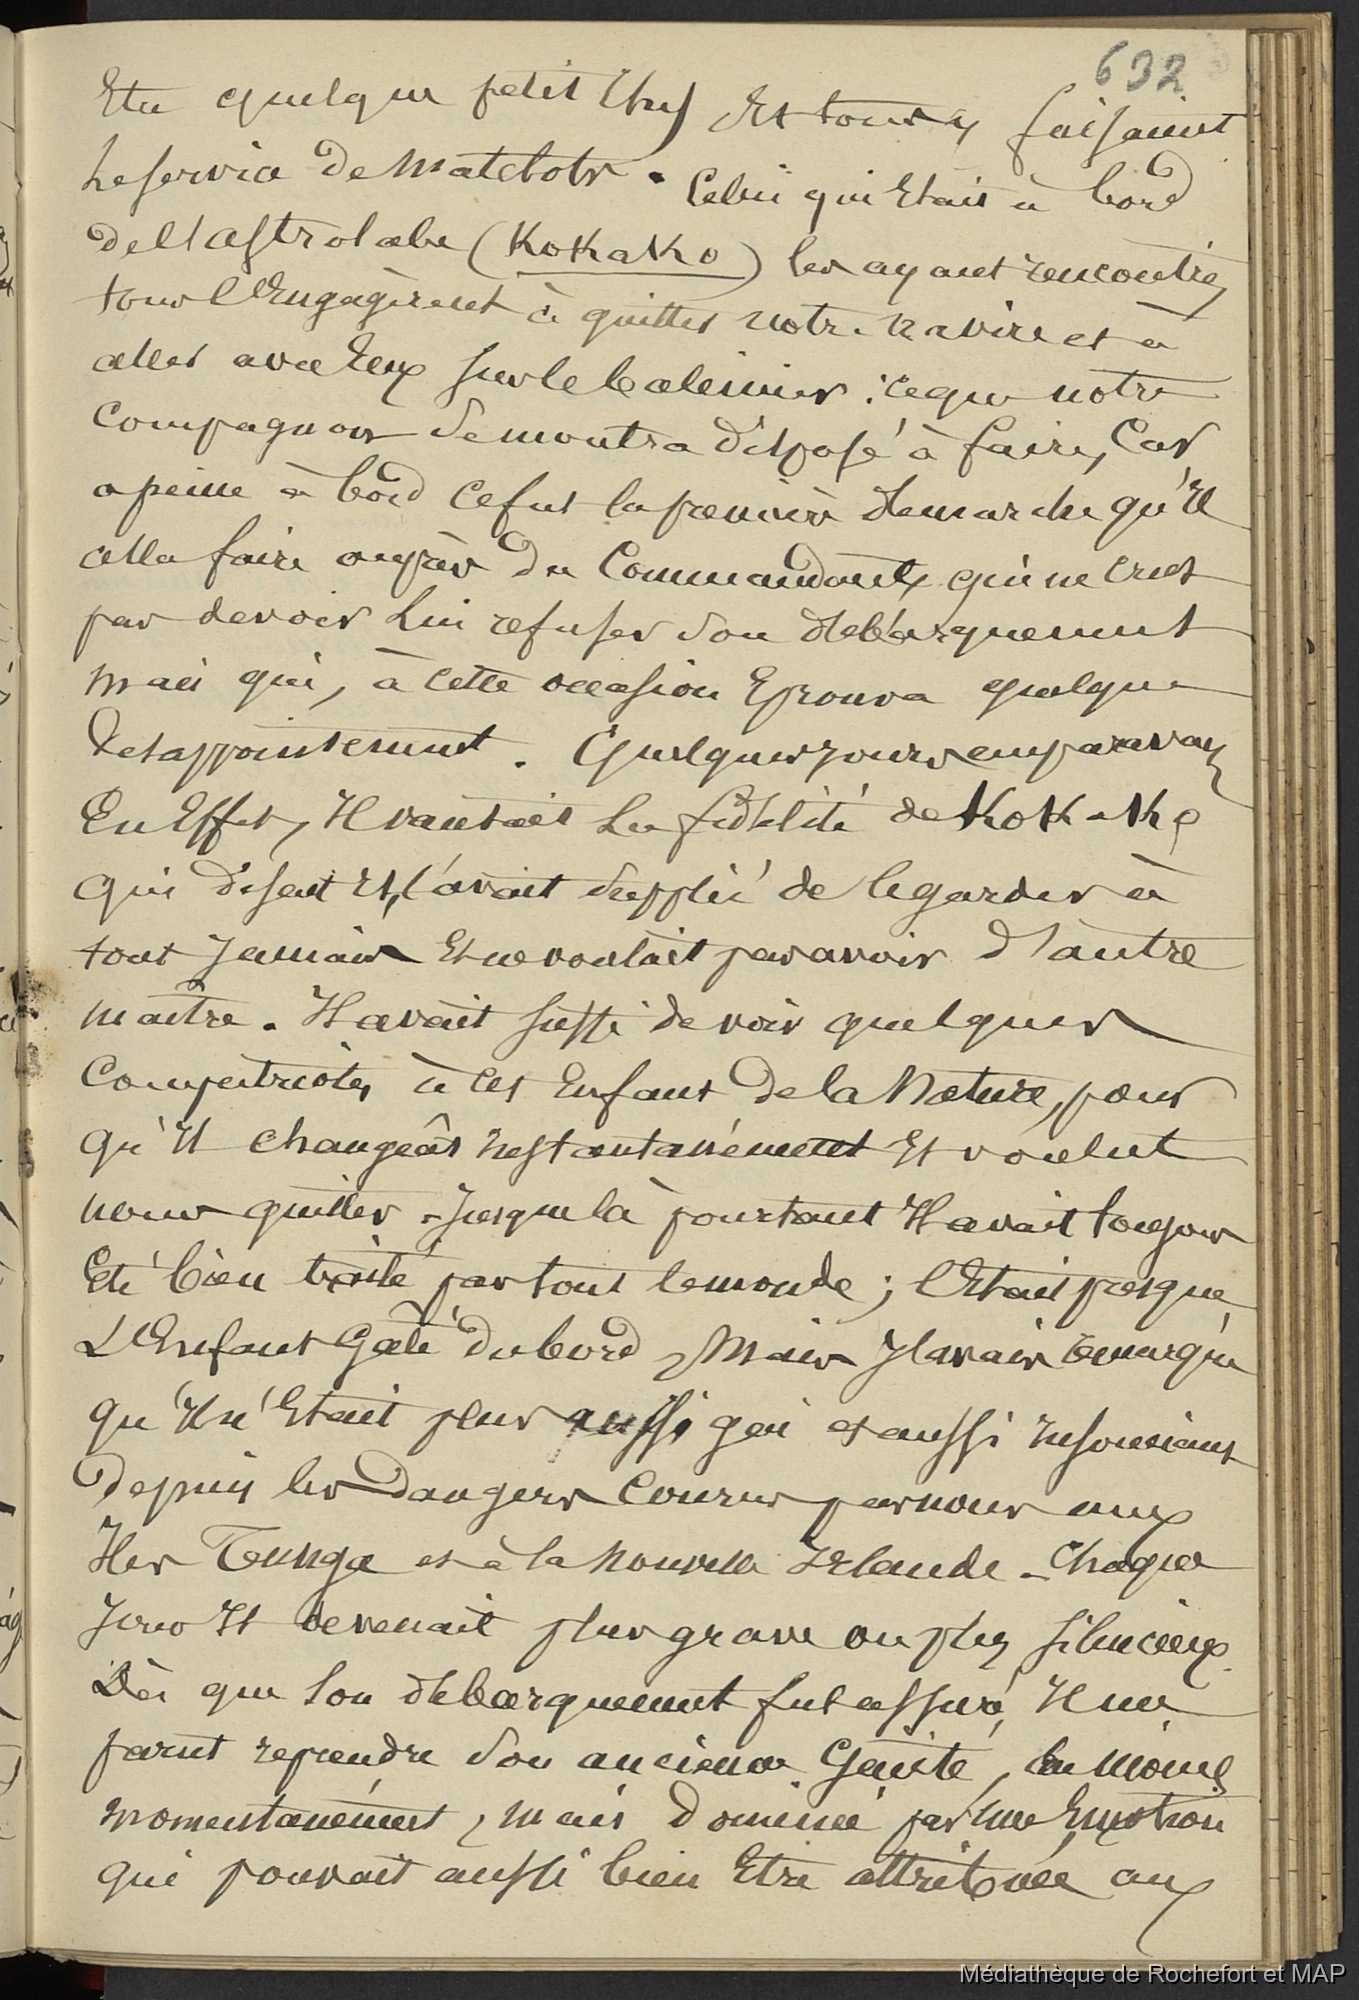 632
Etu quelque petit Chef Et tous y faisaient
Le service de Matelots. Celui qui Etait à bord
de l'Astrolabe (Kokako) les ayant rencontrés
tous l'Engagèrent à quitter notre navire et à
aller avec Eux sur le baleinier : ce que notre
Compagnon se montra disposé à faire, Car
a peine à bord ce fut la première demarche qu'Il
alla faire auprès du Commandant qui ne crut
pas devoir Lui refuser son debarquement
mais qui, à cette occasion Eprouva quelque
desappointement. Quelques jours auparavant
En Effet, Il vantait La fidélité de Kokako
qui disait Il, l'avait supplié de le garder à
tout Jamais Et ne voulait pas avoir d'autre
maître. Il avait suffi de voir quelques
Compatriotes à cet Enfant de la Nature, pour
qu'Il changeât Instantanément Et voulut
nous quitter. Jusque là pourtant Il avait toujours
Eté bien traité par tout le monde ; C'Etait presque
L'Enfant Gâté du bord, Mais J'avais remarqué
qu'Il n'Etait plus aussi gai et aussi Insouciant
depuis les Dangers Courus par nous aux
Iles Tonga et à la Nouvelle Irlande. Chaque
Jour Il devenait plus grave ou plus silencieux.
Dès que son debarquement fut assuré, Il me
parut reprendre son ancienne Gaieté, au moins
momentanément, mais dominé par une Emotion
qui pouvait aussi bien Etre attribuée aux
Médiathèque de Rochefort et MAP